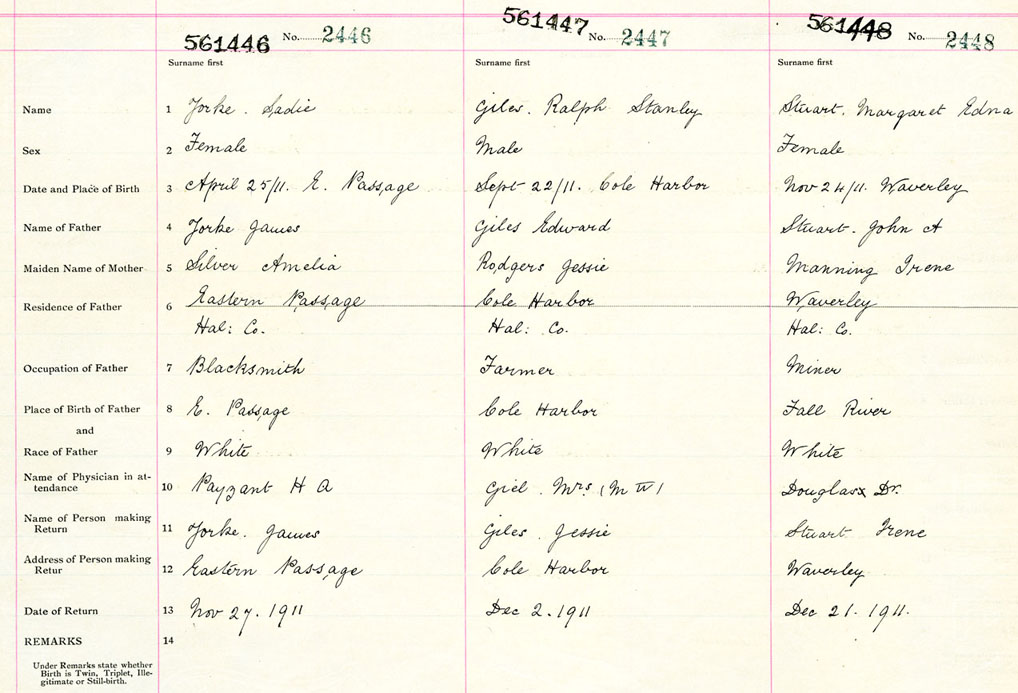 561446 No. 2446 561447 No. 2447 561448 No. 2448
Surname first Surname first Surname first
Name 1 Yorke. Sadie Giles. Ralph Stanley Stuart. Margaret Edna
Sex 2 Female Male Female
Date and Place of Birth 3 April 25/11. E. Passage Sept 22/11. Cole Harbor Nov 24/11. Waverley
Name of Father 4 Yorke James Giles Edward Stuart. John A
Maiden Name of Mother 5 Silver Amelia Rodgers Jessie Manning Irene
Residence of Father 6 Eastern Passage Cole Harbor Waverley
Hal: Co. Hal: Co. Hal: Co.
Occupation of Father 7 Blacksmith Farmer Miner
Place of Birth of Father 8 E. Passage Cole Harbor Fall River
and
Race of Father 9 White White White
Name of Physician in at-
tendance 10 Payzant H A Giel. Mrs (M W) Douglas Dr.
Name of Person making
Return 11 Yorke. James Giles. Jessie Stuart Irene
Address of Person making
Retur 12 Eastern Passage Cole Harbor Waverley
Date of Return 13 Nov 27. 1911 Dec 2. 1911 Dec 21. 1911.
REMARKS 14
Under Remarks state whether
Birth is Twin, Triplet, Ille-
gitimate or Still-birth.